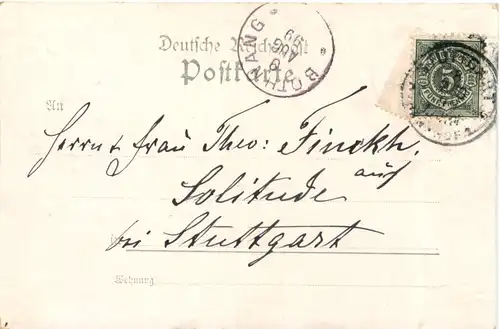 Deutsche Reichspost
Postkarte
BOTHNANG
AUG
99
5
An
Herrn & Frau Theo: Finckh,
auf
Solitude
bei Stuttgart
Wohnung